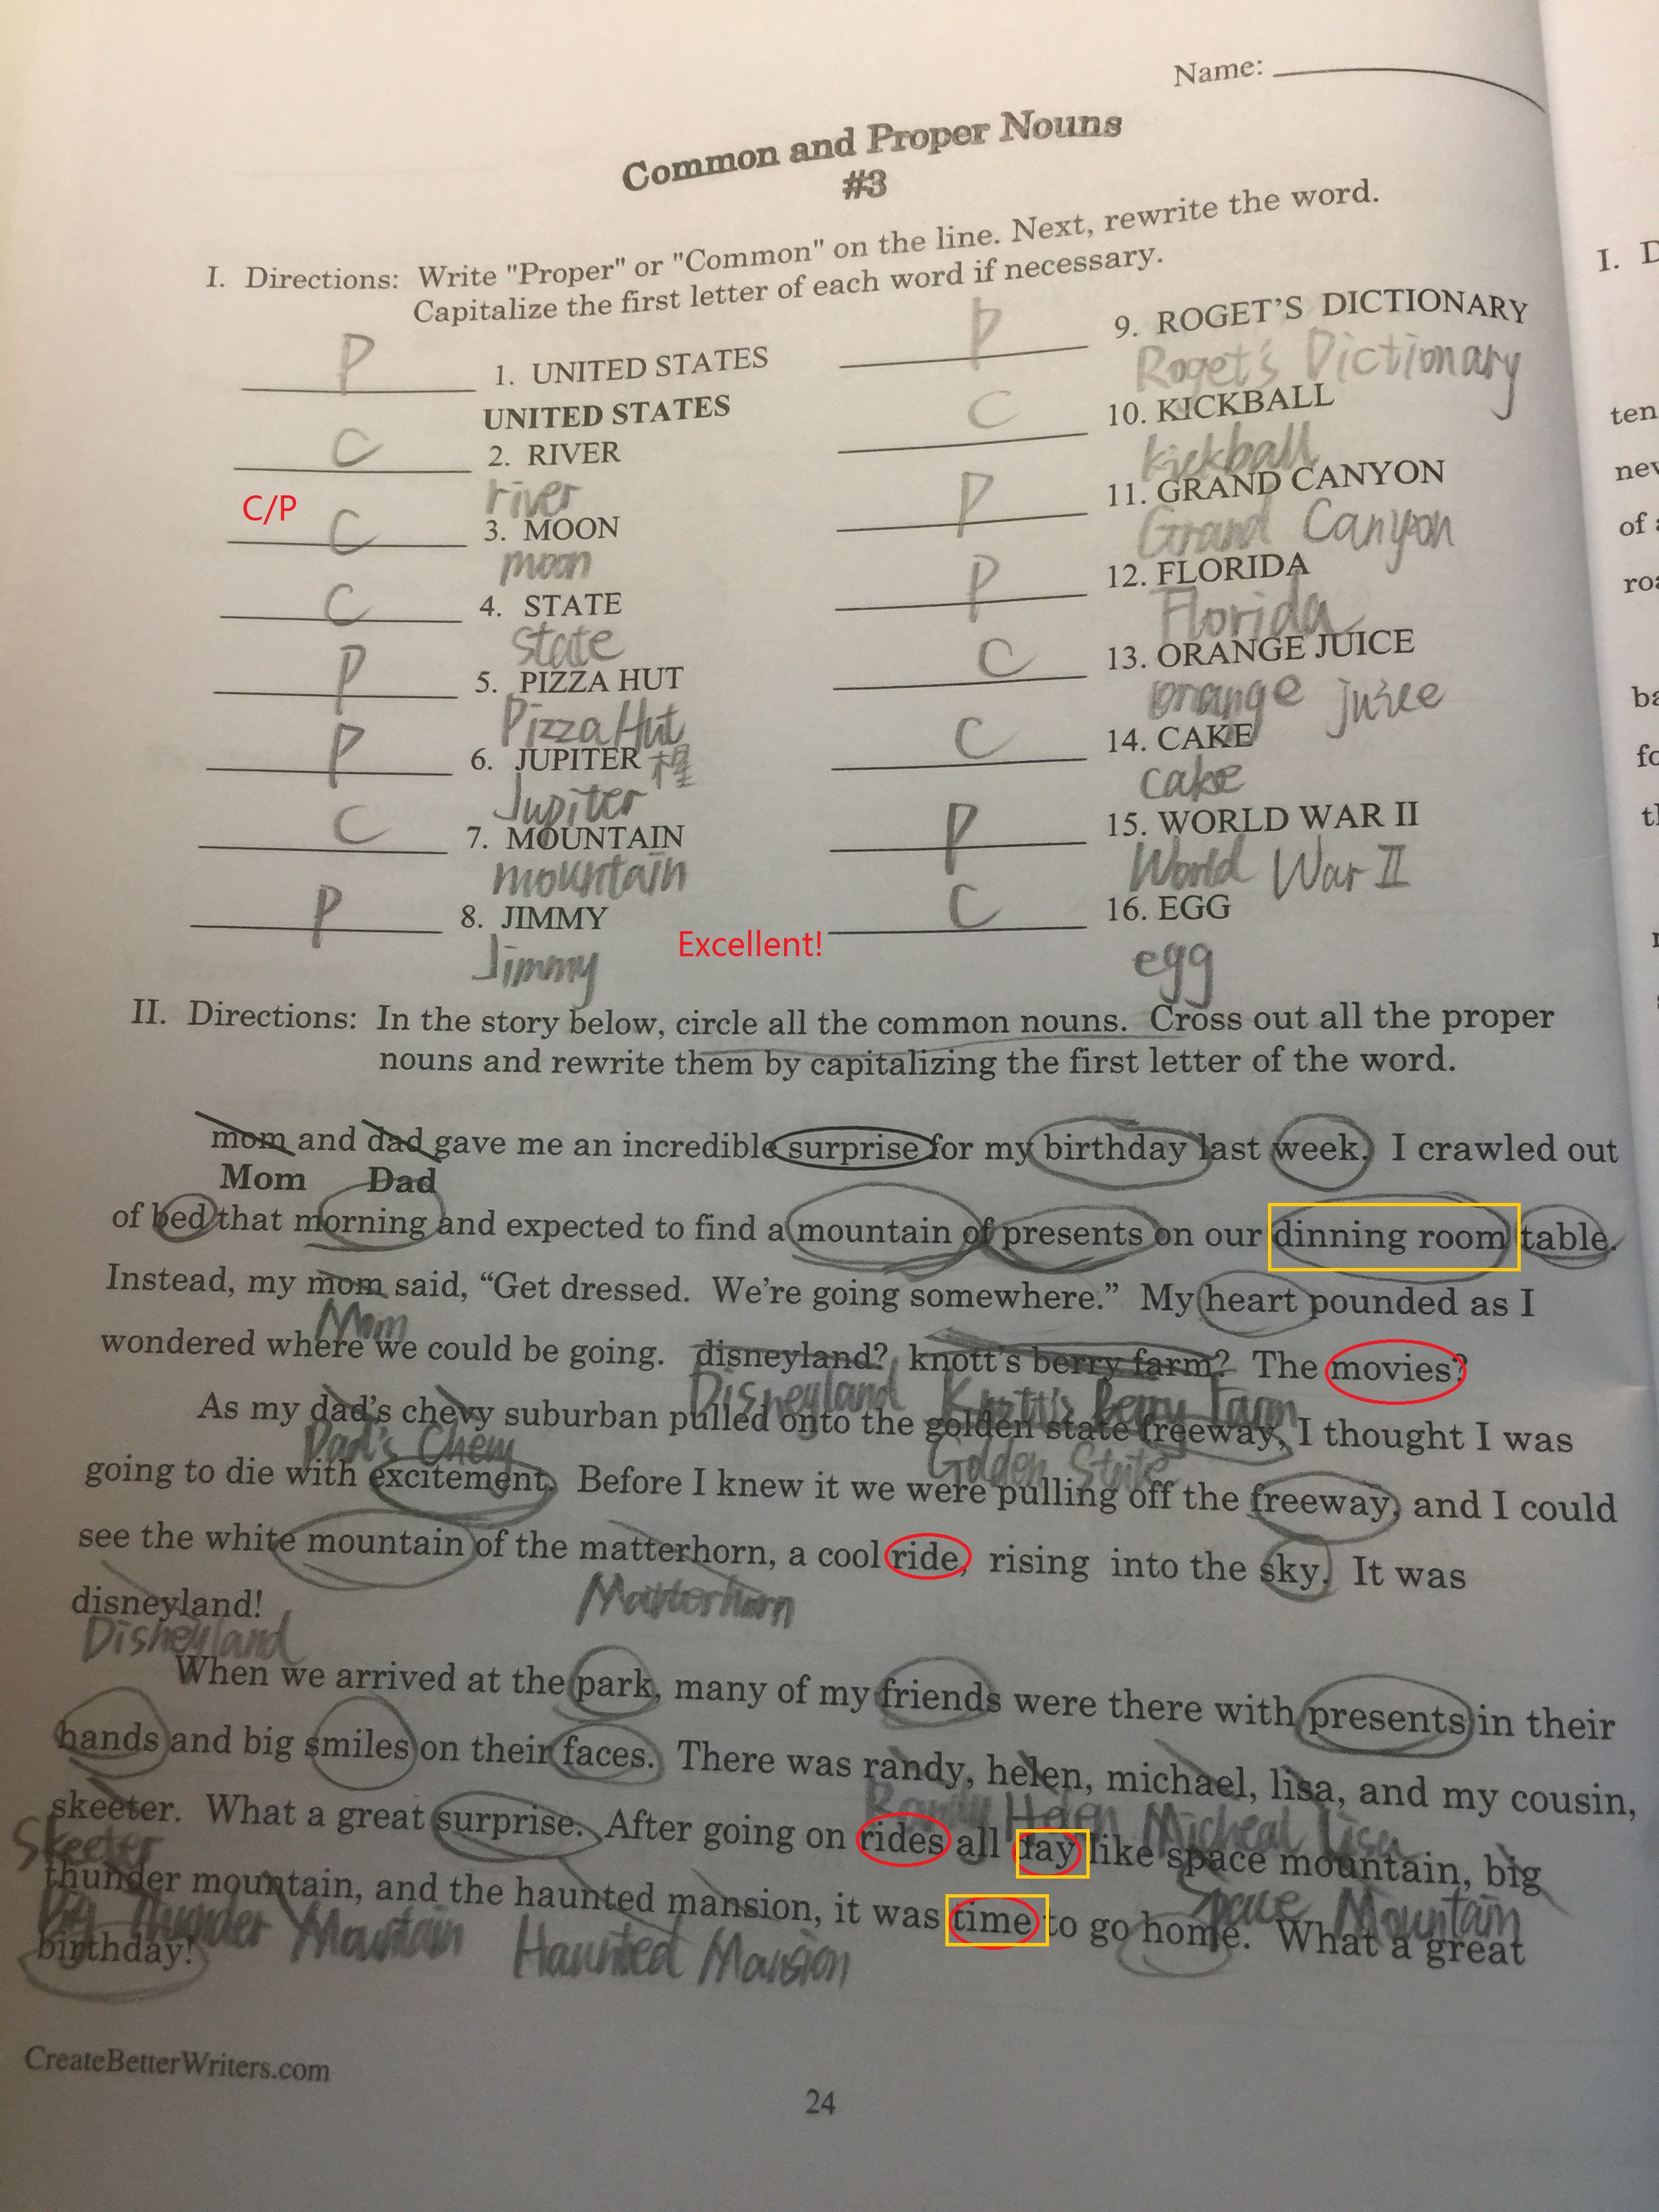 Name:
Common and Proper Nouns
#3
I. Directions: Write "Proper" or "Common" on the line. Next, rewrite the word.
Capitalize the first letter of each word if necessary.
P 1. UNITED STATES
UNITED STATES
C 2. RIVER
river
C/P C 3. MOON
moon
C 4. STATE
state
P 5. PIZZA HUT
Pizza Hut
P 6. JUPITER
Jupiter
C 7. MOUNTAIN
mountain
P 8. JIMMY
Jimmy
P 9. ROGET'S DICTIONARY
Roget's Dictionary
C 10. KICKBALL
kickball
P 11. GRAND CANYON
Grand Canyon
P 12. FLORIDA
Florida
C 13. ORANGE JUICE
orange juice
C 14. CAKE
cake
P 15. WORLD WAR II
World War II
C 16. EGG
egg
Excellent!
II. Directions: In the story below, circle all the common nouns. Cross out all the proper
nouns and rewrite them by capitalizing the first letter of the word.
mom and dad gave me an incredible surprise for my birthday last week. I crawled out
Mom Dad
of bed that morning and expected to find a mountain of presents on our dinning room table.
Instead, my mom said, “Get dressed. We're going somewhere.” My heart pounded as I
Mom
wondered where we could be going. disneyland? knott's berry farm? The movies?
Disneyland Knott's Berry Farm
As my dad's chevy suburban pulled onto the golden state freeway, I thought I was
Dad's Chevy Golden State
going to die with excitement. Before I knew it we were pulling off the freeway, and I could
see the white mountain of the matterhorn, a cool ride, rising into the sky. It was
Matterhorn
disneyland!
Disneyland
When we arrived at the park, many of my friends were there with presents in their
hands and big smiles on their faces. There was randy, helen, michael, lisa, and my cousin,
Randy Helen Micheal Lisa
skeeter. What a great surprise. After going on rides all day like space mountain, big
Skeeter Space Mountain
thunder mountain, and the haunted mansion, it was time to go home. What a great
Big Thunder Mountain Haunted Mansion
birthday!
CreateBetterWriters.com
24
I. D
ten
nev
of a
roa
ba
fo
th